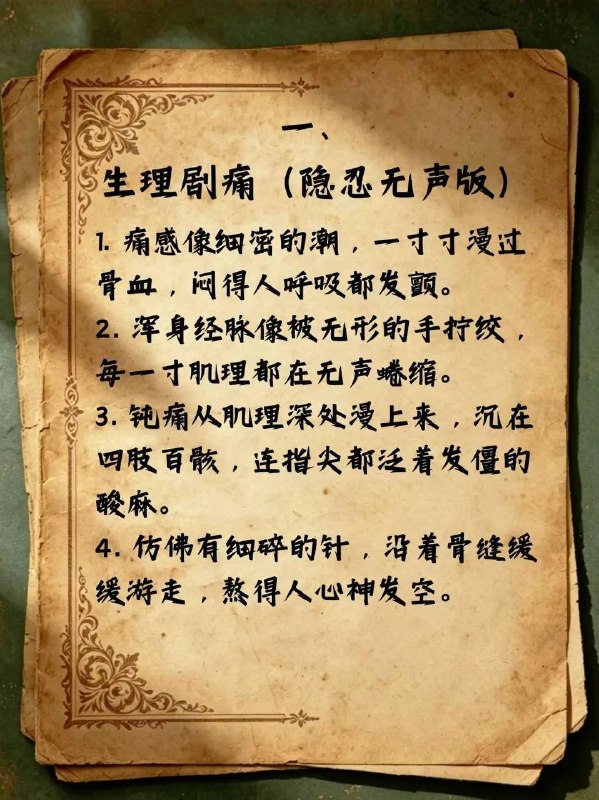 一、
生理剧痛（隐忍无声版）
1. 痛感像细密的潮，一寸寸漫过
骨血，闷得人呼吸都发颤。
2. 浑身经脉像被无形的手拧绞，
每一寸肌理都在无声蜷缩。
3. 钝痛从肌理深处漫上来，沉在
四肢百骸，连指尖都泛着发僵的
酸麻。
4. 仿佛有细碎的针，沿着骨缝缓
缓游走，熬得人心神发空。